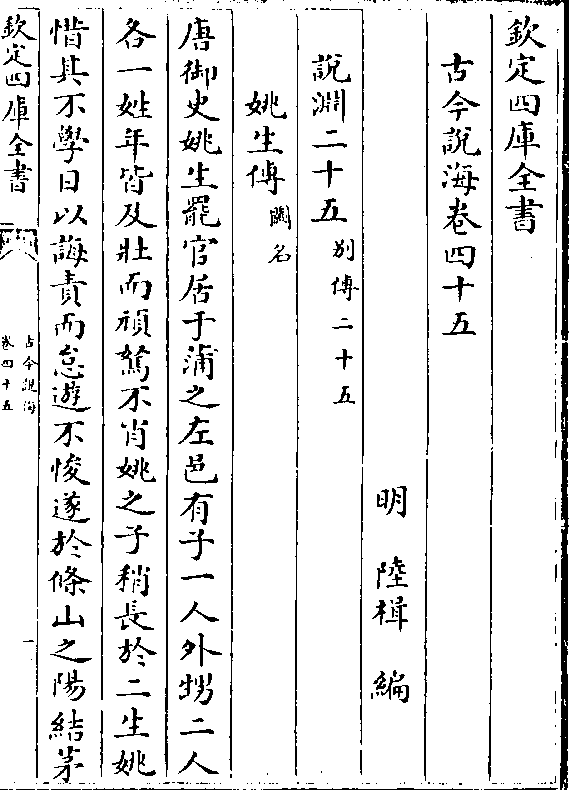 欽定四庫全書
古今說海卷四十五
明 陸楫 編
說淵二十五 别傳二十五
姚生傳 闕名
唐御史姚生罷官居于蒲之左邑有子一人外甥二人
各一姓年皆及壯而頑駑不肖姚之子稍長於二生姚
惜其不學日以誨責而怠遊不悛遂於條山之陽結茅
欽定四庫全書
古今說海
卷四十五
一